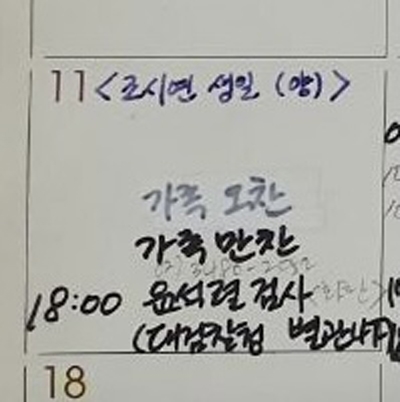 11 <조시연 생일 (양)>
가족 오찬
가족 만찬
18:00 윤석열 검사
(대검찰청 별관
18